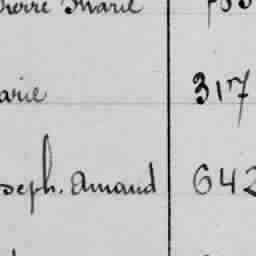 Pierre Marie
arie 317
oseph. Amand 642